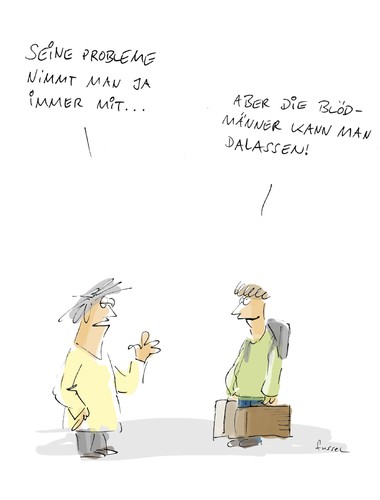 SEINE PROBLEME
NIMMT MAN JA
IMMER MIT...
ABER DIE BLÖD-
MÄNNER KANN MAN
DALASSEN!
fussel